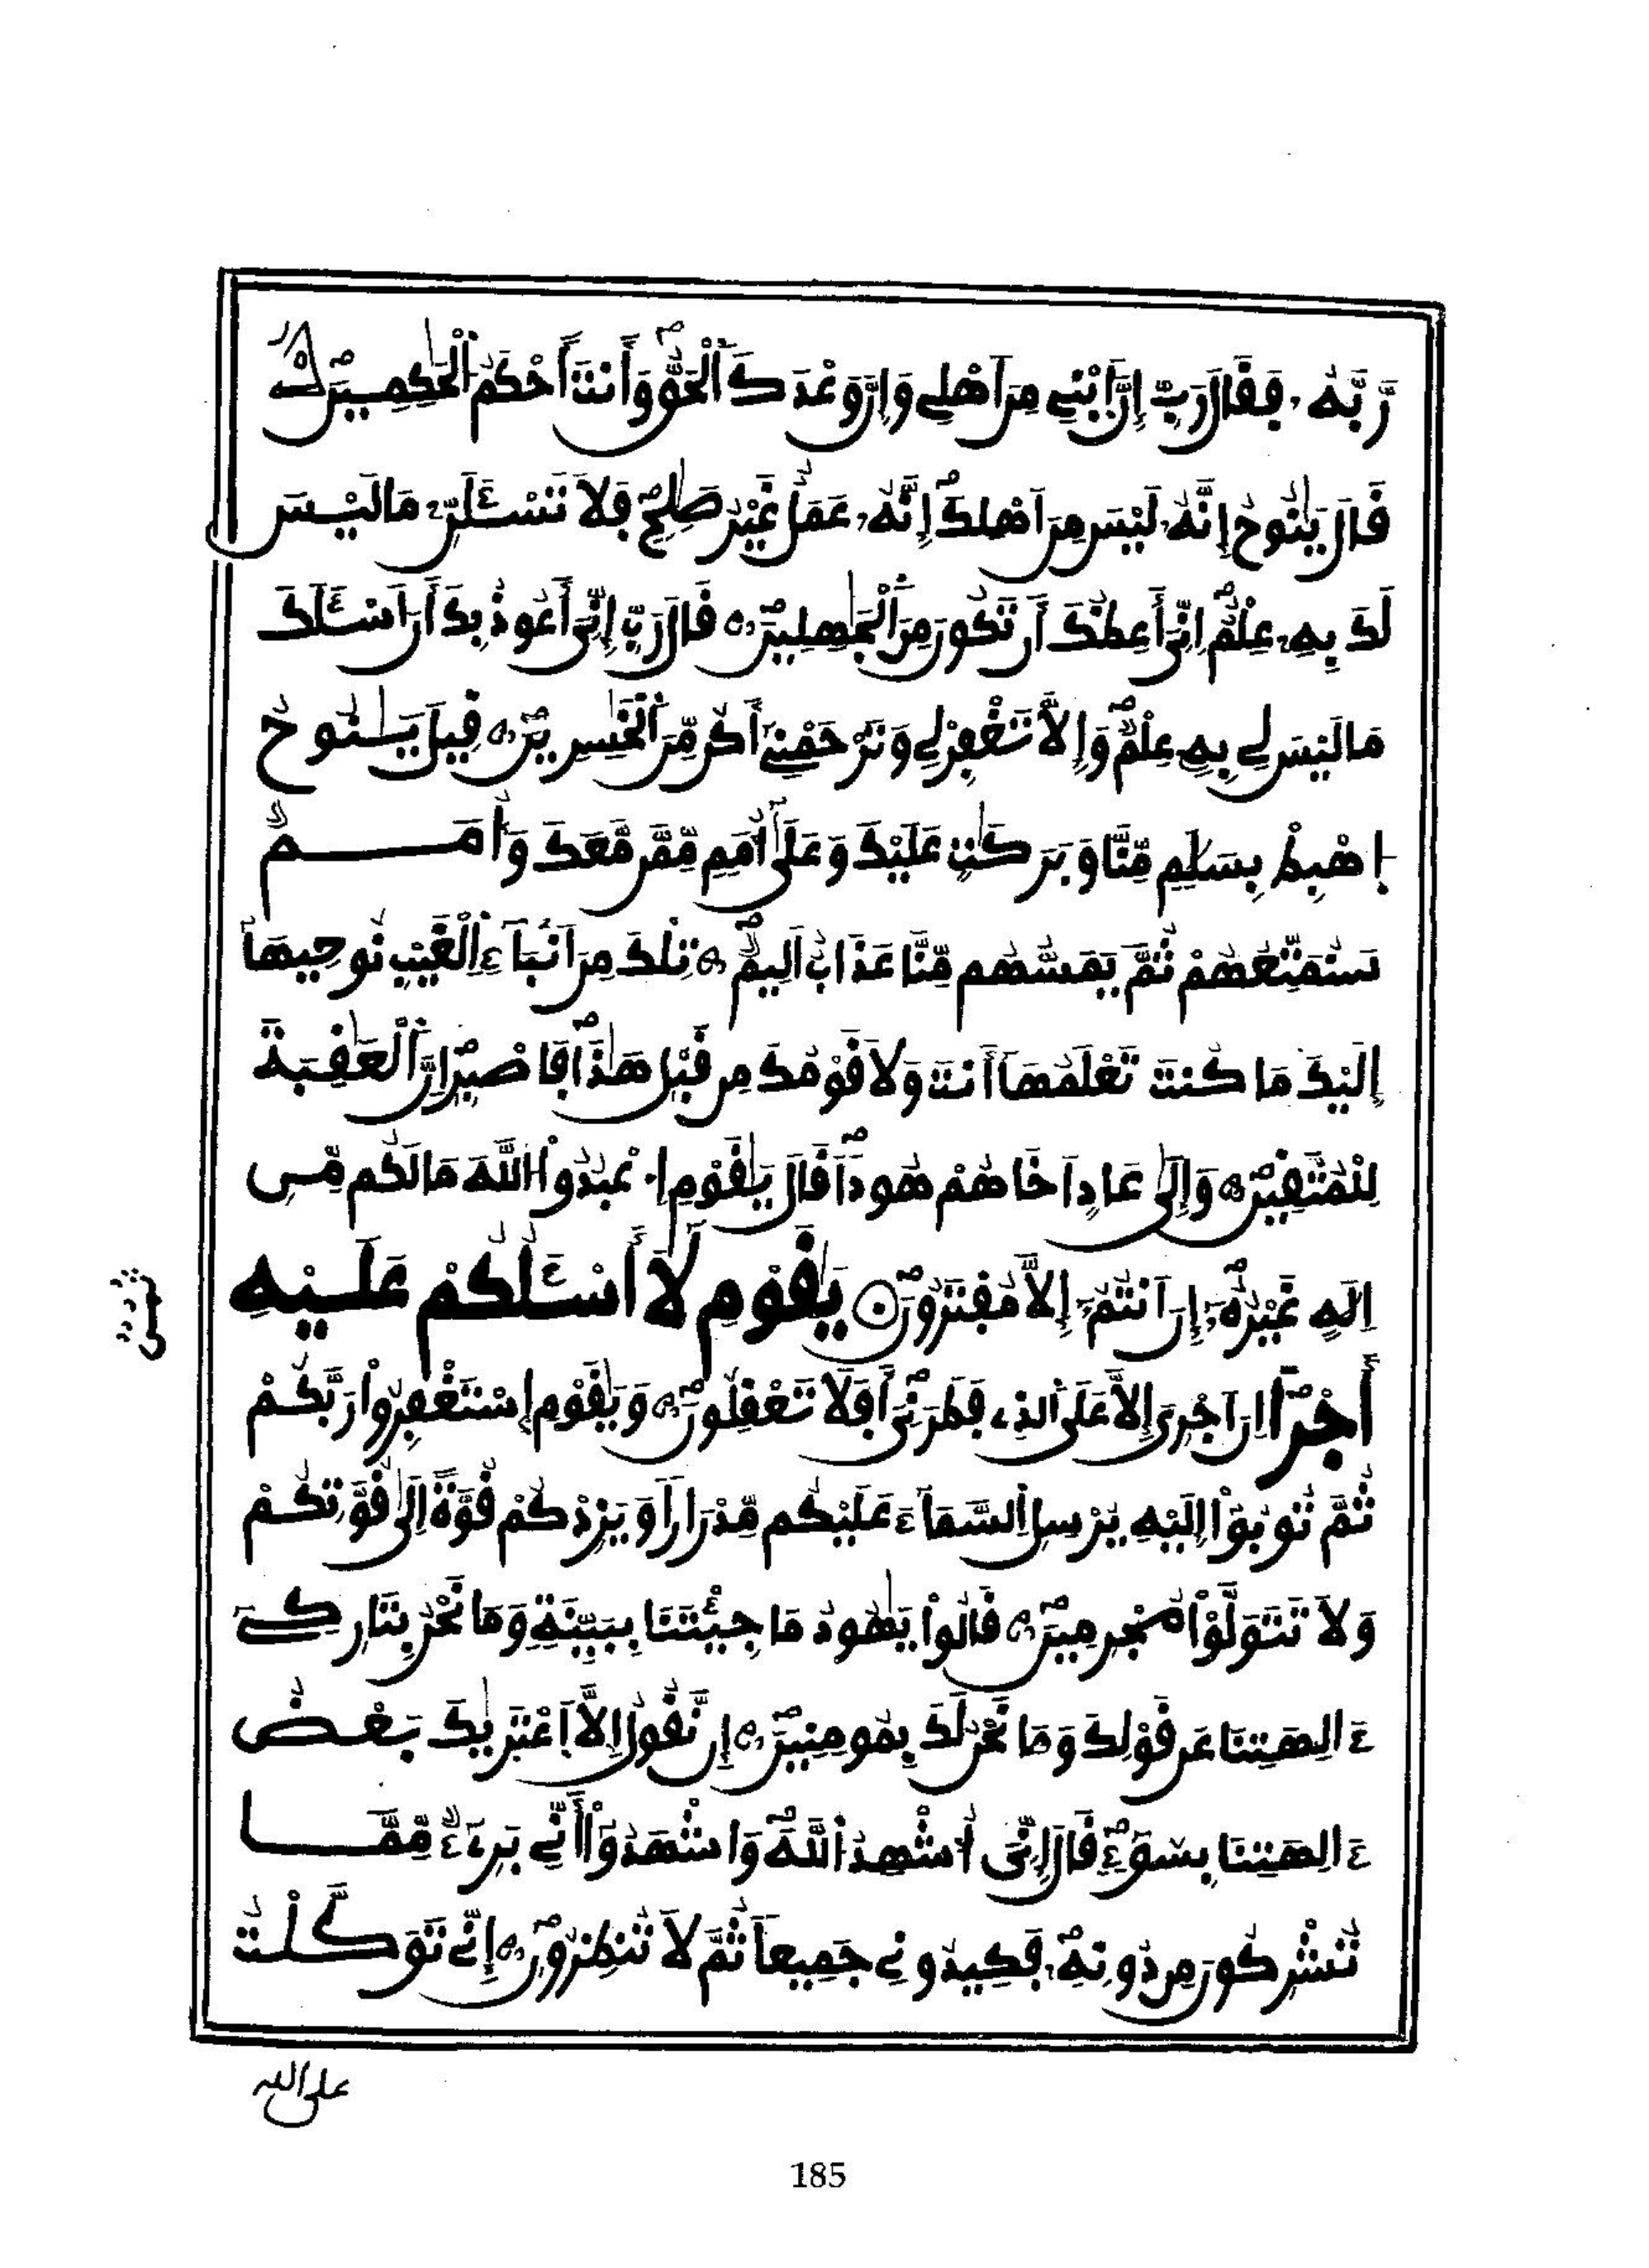 رَّبَّهُۥ فَقَالَ رَبِّ إِنَّ اَ۪بْنِے مِنَ اَهْلِے وَإِنَّ وَعْدَكَ اَ۬لْحَقُّ وَأَنتَ أَحْكَمُ اُ۬لْحَٰكِمِينَ
قَالَ يَٰنُوحُ إِنَّهُۥ لَيْسَ مِنَ اَهْلِكَ إِنَّهُۥ عَمَلٌ غَيْرُ صَٰلِحٖ فَلَا تَسْـَٔلَنِّۦ مَا لَيْسَ
لَكَ بِهِۦ عِلْمٌ اِنِّيَ أَعِظُكَ أَن تَكُونَ مِنَ اَ۬لْجَٰهِلِينَ قَالَ رَبِّ إِنِّيَ أَعُوذُ بِكَ أَنَ اَسْـَٔلَكَ
مَا لَيْسَ لِے بِهِۦ عِلْمٌ وَإِلَّا تَغْفِرْ لِے وَتَرْحَمْنِےٓ أَكُن مِّنَ اَ۬لْخَٰسِرِينَ قِيلَ يَٰنُوحُ
اُ۪هْبِطْ بِسَلَٰمٖ مِّنَّا وَبَرَكَٰتٍ عَلَيْكَ وَعَلَىٰٓ أُمَمٖ مِّمَّن مَّعَكَ وَأُمَمٌ
سَنُمَتِّعُهُمْ ثُمَّ يَمَسُّهُم مِّنَّا عَذَابٌ اَلِيمٌ تِلْكَ مِنَ اَنۢبَآءِ اِ۬لْغَيْبِ نُوحِيهَآ
إِلَيْكَ مَا كُنتَ تَعْلَمُهَآ أَنتَ وَلَا قَوْمُكَ مِن قَبْلِ هَٰذَا فَاصْبِرِ اِنَّ اَ۬لْعَٰقِبَةَ
لِلْمُتَّقِينَ وَإِلَىٰ عَادٍ اَخَاهُمْ هُوداٗ قَالَ يَٰقَوْمِ اِ۟عْبُدُواْ اُ۬للَّهَ مَا لَكُم مِّنِ
اِلَٰهٍ غَيْرُهُۥٓ إِنَ اَنتُمُۥٓ إِلَّا مُفْتَرُونَ يَٰقَوْمِ لَآ أَسْـَٔلُكُمْ عَلَيْهِ
أَجْراً اِنَ اَجْرِيَ إِلَّا عَلَى اَ۬لذِے فَطَرَنِيَ أَفَلَا تَعْقِلُونَ وَيَٰقَوْمِ اِ۪سْتَغْفِرُواْ رَبَّكُمْ
ثُمَّ تُوبُوٓاْ إِلَيْهِ يُرْسِلِ اِ۬لسَّمَآءَ عَلَيْكُم مِّدْرَاراٗ وَيَزِدْكُمْ قُوَّةً اِلَىٰ قُوَّتِكُمْ
وَلَا تَتَوَلَّوْاْ مُجْرِمِينَ قَالُواْ يَٰهُودُ مَا جِئْتَنَا بِبَيِّنَةٖ وَمَا نَحْنُ بِتَارِكِےٓ
ءَالِهَتِنَا عَن قَوْلِكَ وَمَا نَحْنُ لَكَ بِمُومِنِينَ إِن نَّقُولُ إِلَّا اَ۪عْتَرَىٰكَ بَعْضُ
ءَالِهَتِنَا بِسُوٓءٖ قَالَ إِنِّيَ أُشْهِدُ اُ۬للَّهَ وَاشْهَدُوٓاْ أَنِّے بَرِےٓءٞ مِّمَّا
تُشْرِكُونَ مِن دُونِهِۦ فَكِيدُونِے جَمِيعاٗ ثُمَّ لَا تُنظِرُونِ إِنِّے تَوَكَّلْتُ
على الله
185